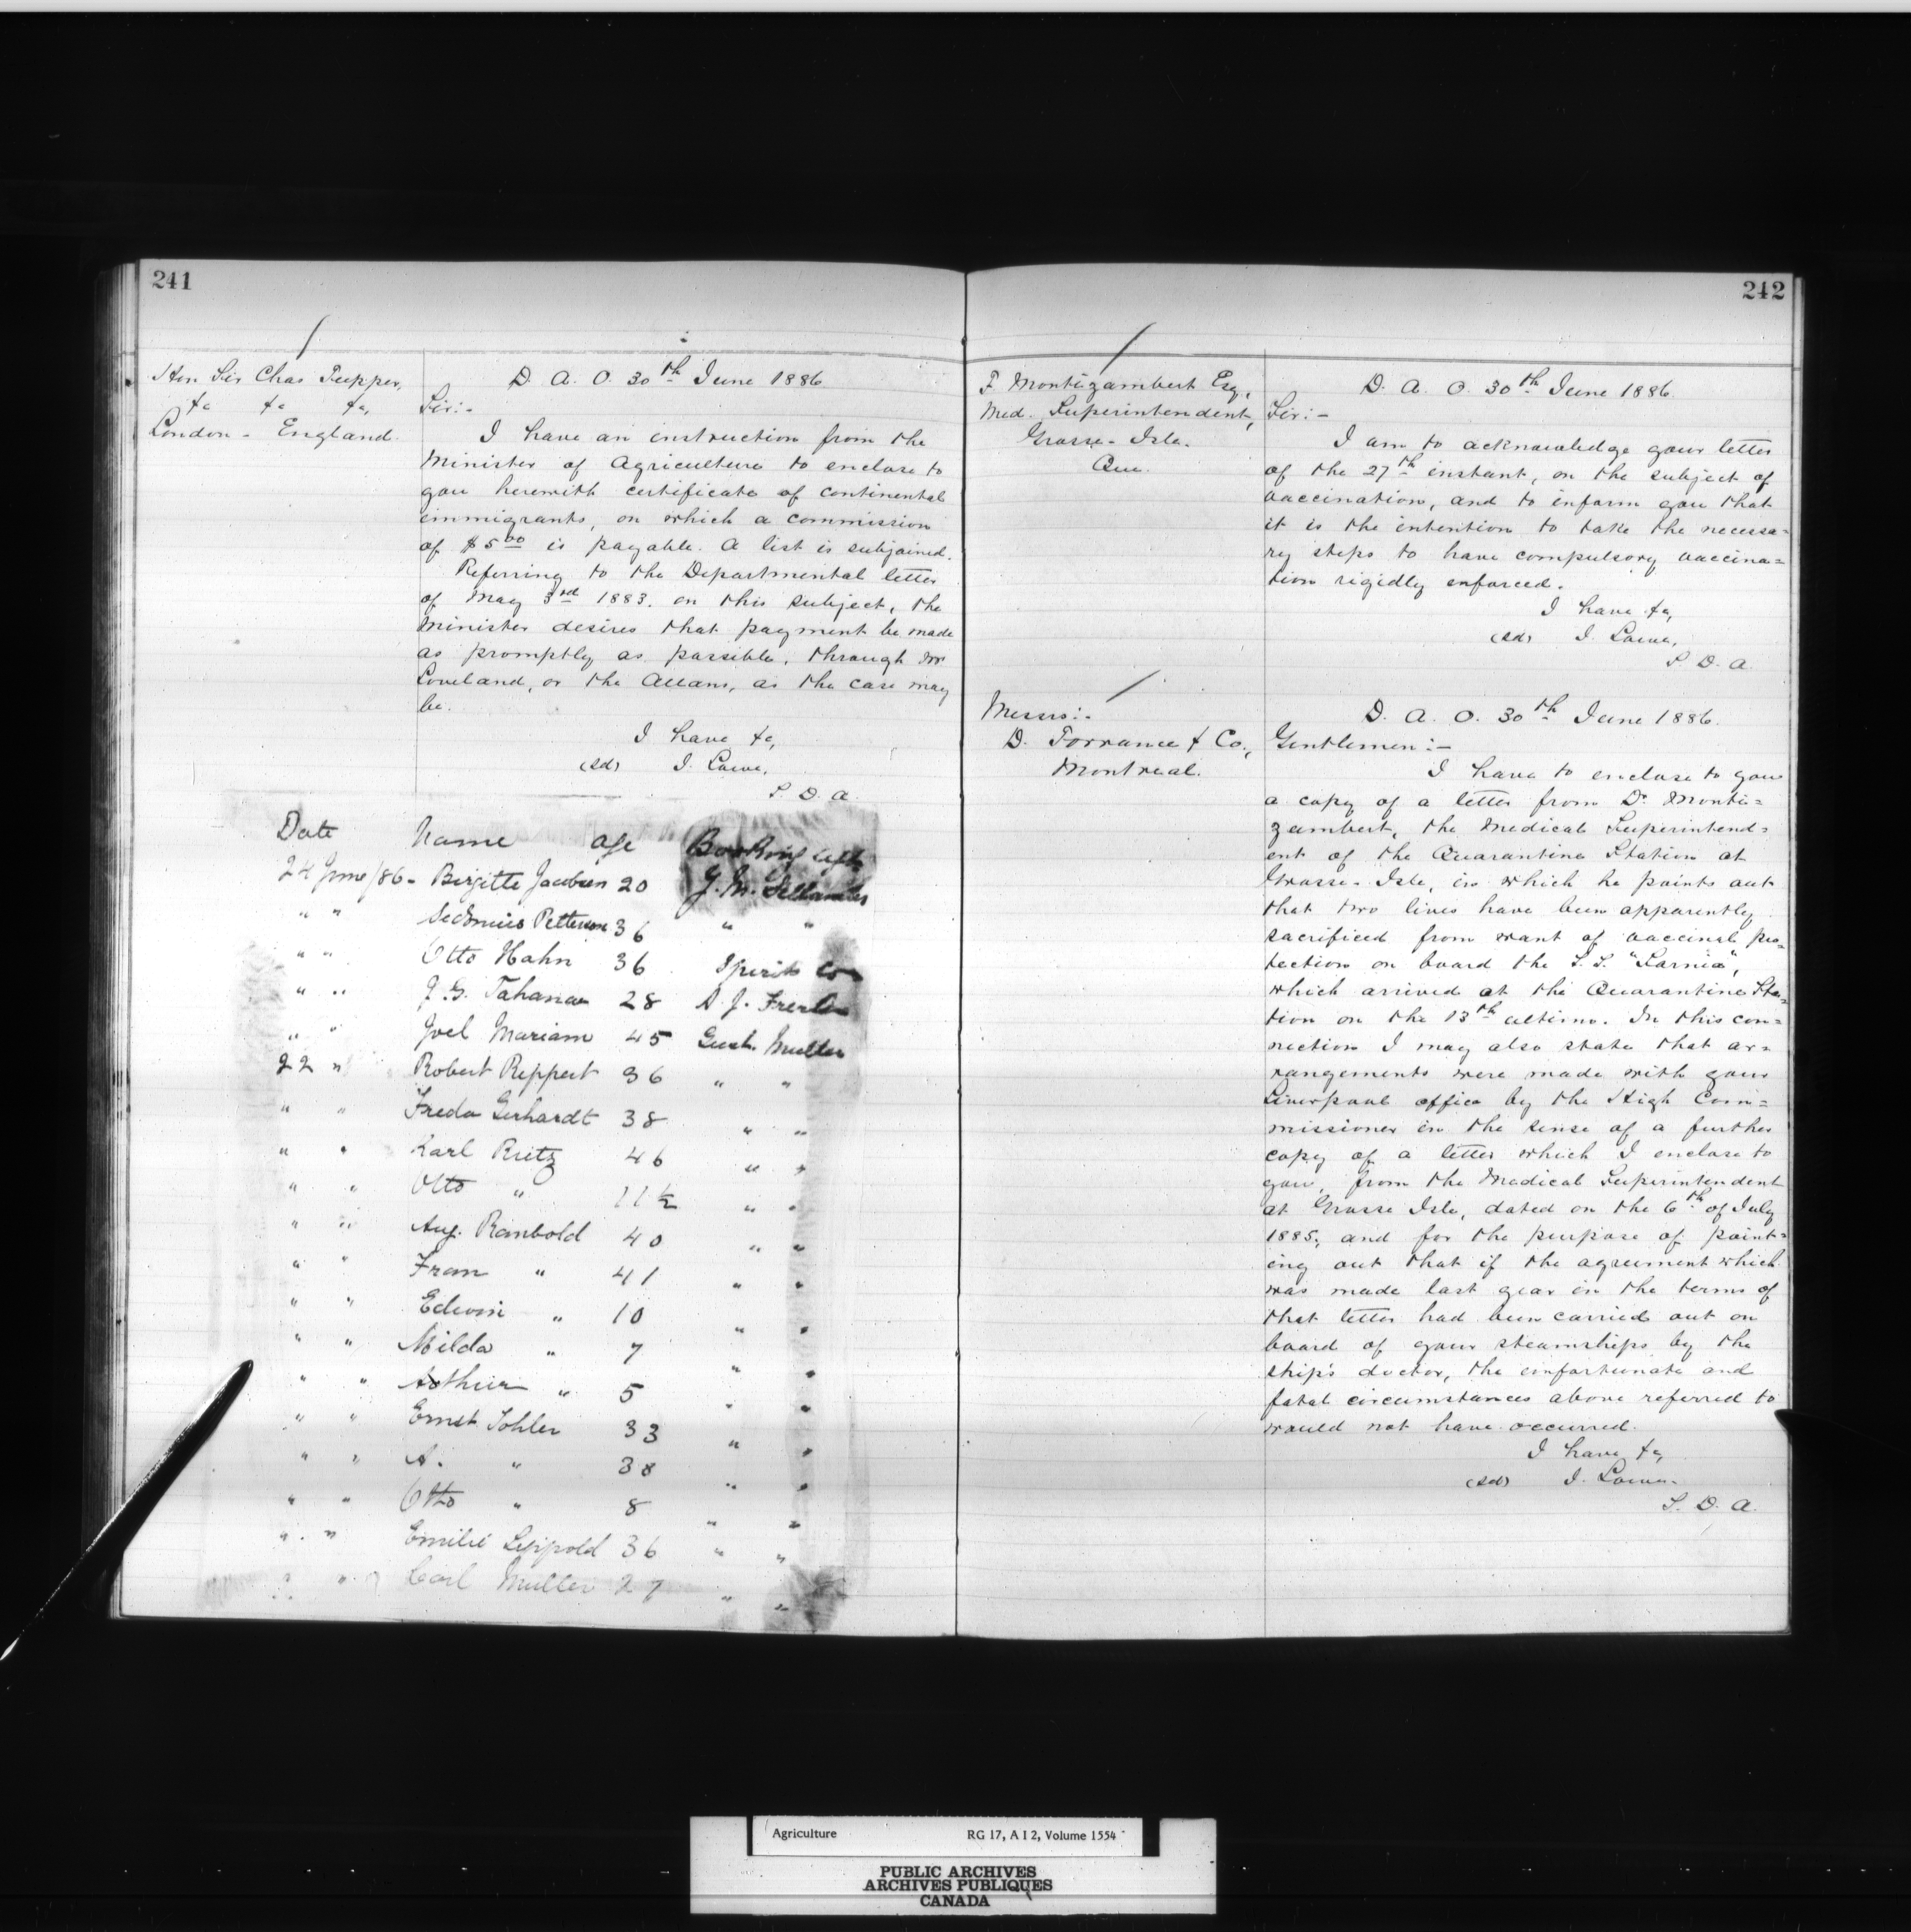 241
Hon Sir Chas Tupper,
&c &c &c,
London - England.
D. A. O. 30th June 1886
Sir:-
I have an instruction from the
Minister of Agriculture to enclose to
you herewith certificate of continental
immigrants, on which a commission
of $5.00 is payable. A list is subjoined.
Referring to the Departmental letter
of May 3rd 1883. on this subject, the
Minister desires that payment be made
as promptly as possible, through Mr
Loveland, or the Allans, as the case may
be.
I have &c,
(sd) J. Lowe,
S. D. A.
Date Name Age Booking Agts
24 June/86 - Birgitte Jacobsen 20 G. M.
" " Petterson 36 " "
" " Otto Hahn 36 Spirits Co
" " J. G. 28 D. J.
" " Joel Mariam 45 Gust. Muller
22 " Robert Reppert 36 " "
" " Freda Gerhardt 38 " "
" " Karl Reitz 46 " "
" " Otto " 11 ½ " "
" " Aug. Rambold 40 " "
" " Fran " 41 " "
" " Edwin " 10 " "
" " Milda " 7 " "
" " Arthur " 5 " "
" " Ernst Tohler 33 " "
" " A. " 38 " "
" " Otto " 8 " "
" " Emilie Leippold 36 " "
" " Carl Muller 27 " "
242
F. Montizambert Esq,
Med. Superintendent,
Grosse-Isle.
Que.
D. A. O. 30th June 1886.
Sir:-
I am to acknowledge your letter
of the 27th instant, on the subject of
vaccination, and to inform you that
it is the intention to take the necessa=
ry steps to have compulsory vaccina=
tion rigidly enforced.
I have &c,
(sd) J. Lowe,
S. D. A.
Messrs:-
D. Torrance & Co.,
Montreal.
D. A. O. 30th June 1886.
Gentlemen:-
I have to enclose to you
a copy of a letter from Dr Monti=
zambert, the Medical Superintend=
ent of the Quarantine Station at
Grosse-Isle, in which he points out
that two lives have been apparently
sacrificed from want of vaccinal pro=
tection on board the S.S. "Sarnia",
which arrived at the Quarantine Sta=
tion on the 13th ultimo. In this con=
nection I may also state that ar=
rangements were made with your
Liverpool office by the High Com=
missioner in the sense of a further
copy of a letter which I enclose to
you, from the Medical Superintendent
at Grosse Isle, dated on the 6th of July
1885, and for the purpose of point=
ing out that if the agreement which
was made last year in the terms of
that letter had been carried out on
board of your steamships by the
ship's doctor, the unfortunate and
fatal circumstances above referred to
would not have occurred.
I have &c,
(sd) J. Lowe.
S. D. A.
Agriculture RG 17, A I 2, Volume 1554
PUBLIC ARCHIVES
ARCHIVES PUBLIQUES
CANADA